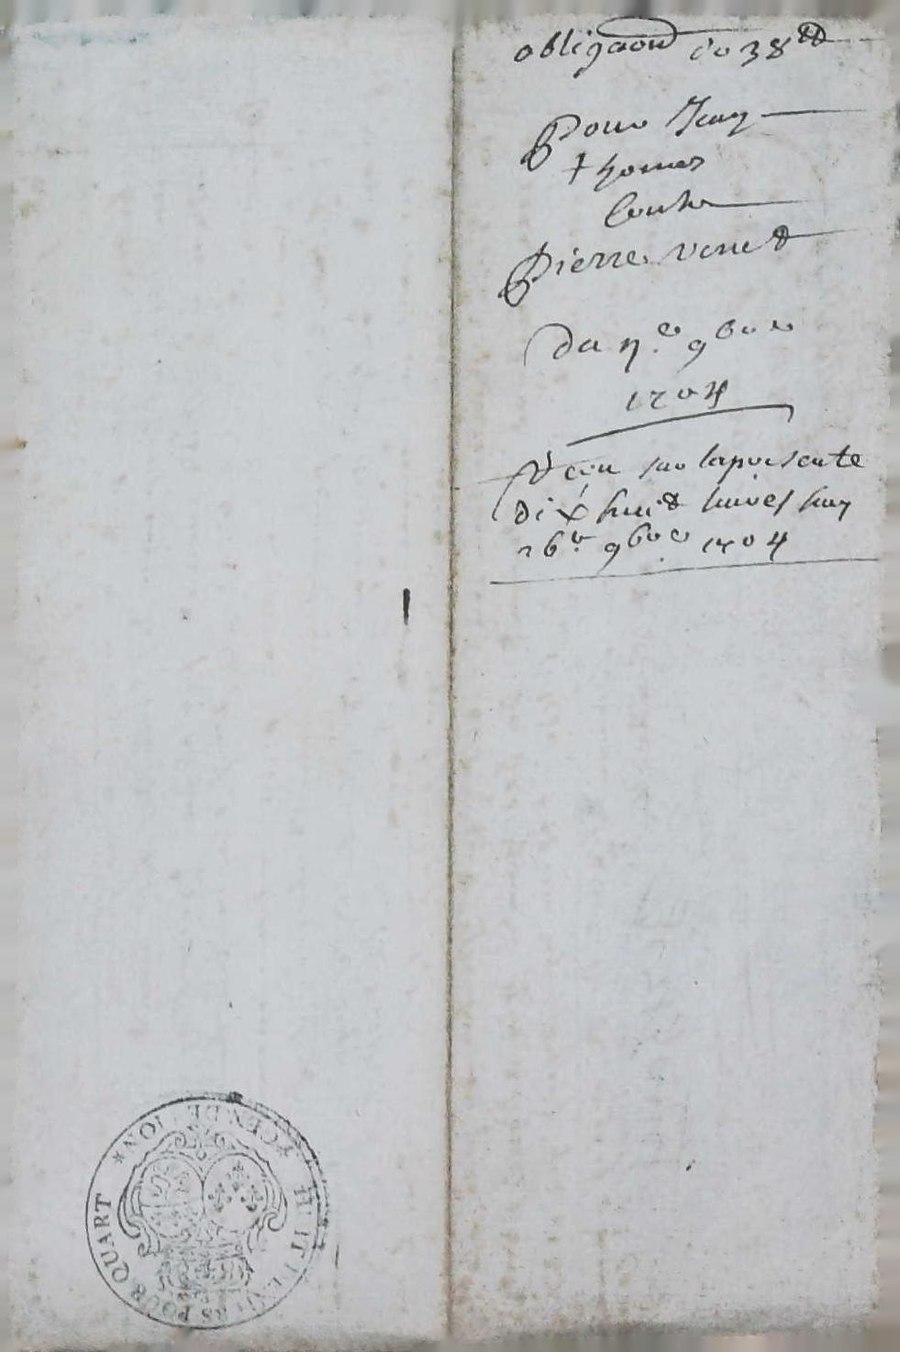 obligaon de 38 tt
Pour Jean
thomas
Contre
Pierre venet
du 7.e 9bre
1704
Receu sur la presente
dix huict livres huy
26.e 9bre 1704
HUIT DENIERS POUR QUART * GEN DE ION *